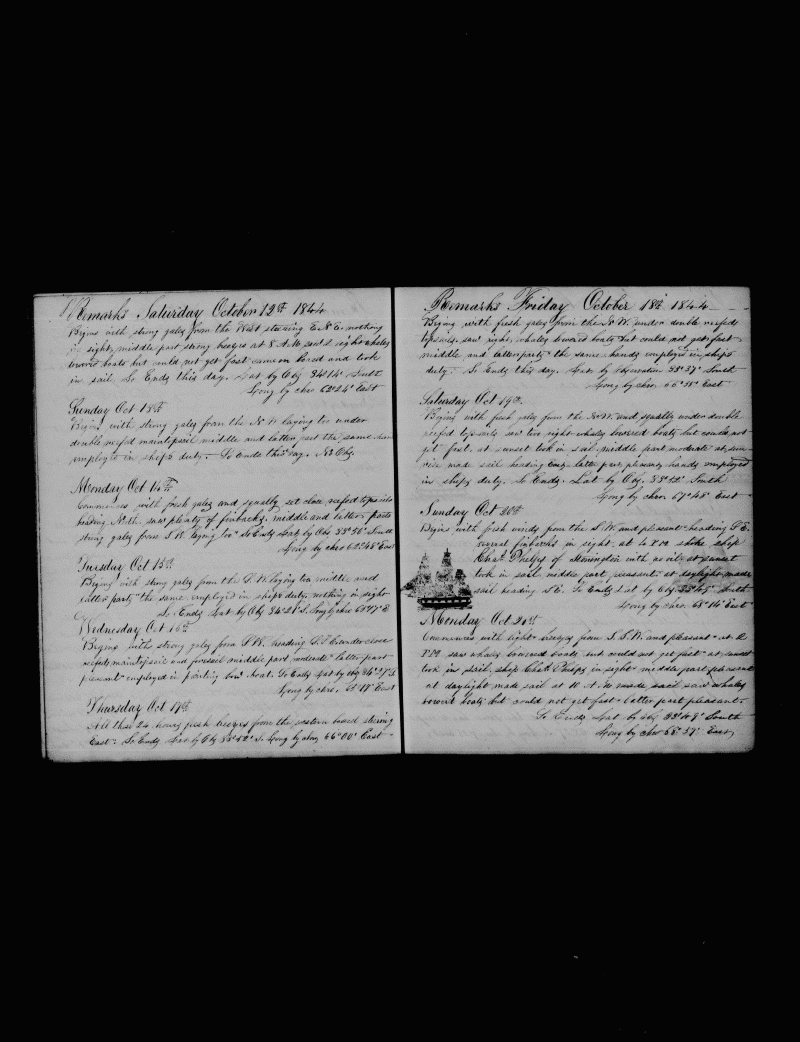 Remarks Saturday October 12th 1844
Begins with strong gales from the West steering E.N.E. nothing
in sight, middle part strong breezes at 8 A.M. saw 2 right whales
lowered boats but could not get fast came on board and took
in sail. So Ends this day. Lat by Obs 34°14' South
Long by chro 62°24' East
Sunday Oct 13th
Begins with strong gales from the N.W. laying too under
double reefed maintopsail middle and latter part the same
employed in ship's duty. So Ends this day. No Obs.
Monday Oct 14th
Commences with fresh gales and squally set close reefed topsails
heading North. saw plenty of finbacks, middle and latter parts
strong gales from S.W. laying too So Ends Lat by Obs 33°50' South
Long by chro 62°48' East
Tuesday Oct 15th
Begins with strong gales from the S.W. laying too middle and
latter parts the same employed in ship's duty, nothing in sight
So Ends Lat by Obs 34°21' S. Long by chro 63°17' E
Wednesday Oct 16th
Begins with strong gales from S.W. heading S.E. under close
reefed maintopsail and foresail middle part moderate latter part
pleasant employed in painting bow boat. So Ends Lat by Obs 34°27' S
Long by chro. East
Thursday Oct 17th
All this 24 hours fresh breezes from the western board steering
East. So Ends Lat by Obs 33°52' S. Long by chro 66°00' East
Remarks Friday October 18th 1844
Begins with fresh gales from the N.W. under double reefed
topsails. saw right whales lowered boats but could not get fast
middle and latter part the same hands employed in ship's
duty. So Ends this day. Lat by Observation 33°37' South
Long by chro. 66°38' East
Saturday Oct 19th.
Begins with fresh gales from the N.W. and squally under double
reefed topsails saw two right whales lowered boats but could not
get fast, at sunset took in sail middle part moderate at sun
rise made sail heading latter part pleasant hands employed
in ship's duty. So Ends. Lat by Obs. 33°52' South
Long by chro. 67°48' East
Sunday Oct 20th
Begins with fresh winds from the S.W. and pleasant heading S.E.
several finbacks in sight. at 4 P.M. spoke ship
Chas. Phelps of Stonington with no oil at sunset
took in sail middle part, pleasant at daylight made
sail heading S.E. So Ends Lat by Obs 33°47' South
Long by chro. 68°14' East
Monday Oct 21st
Commences with light breezes from S.S.W. and pleasant at 2
P.M. saw whales lowered boats but could not get fast at sunset
took in sail. ship Chas. Phelps in sight middle part pleasant
at daylight made sail at 11 A.M. made sail saw whales
lowered boats but could not get fast latter part pleasant.
So Ends Lat by Obs 33°49' South
Long by chro 68°37' East